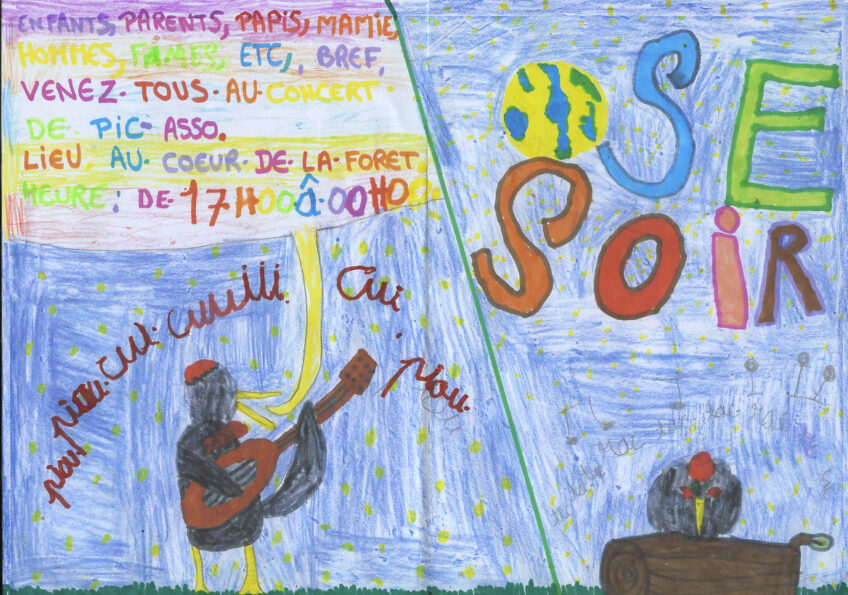 ENFANTS, PARENTS, PAPIS, MAMIE,
HOMMES, FAMES, ETC,, BREF,
VENEZ·TOUS·AU·CONCERT·
DE PIC-ASSO.
LIEU AU·COEUR·DE·LA·FORET.
HEURE: DE·17H00 Â·00H00
piou.piou.cui.cuuiiii. cui. piou.
SE
SOIR